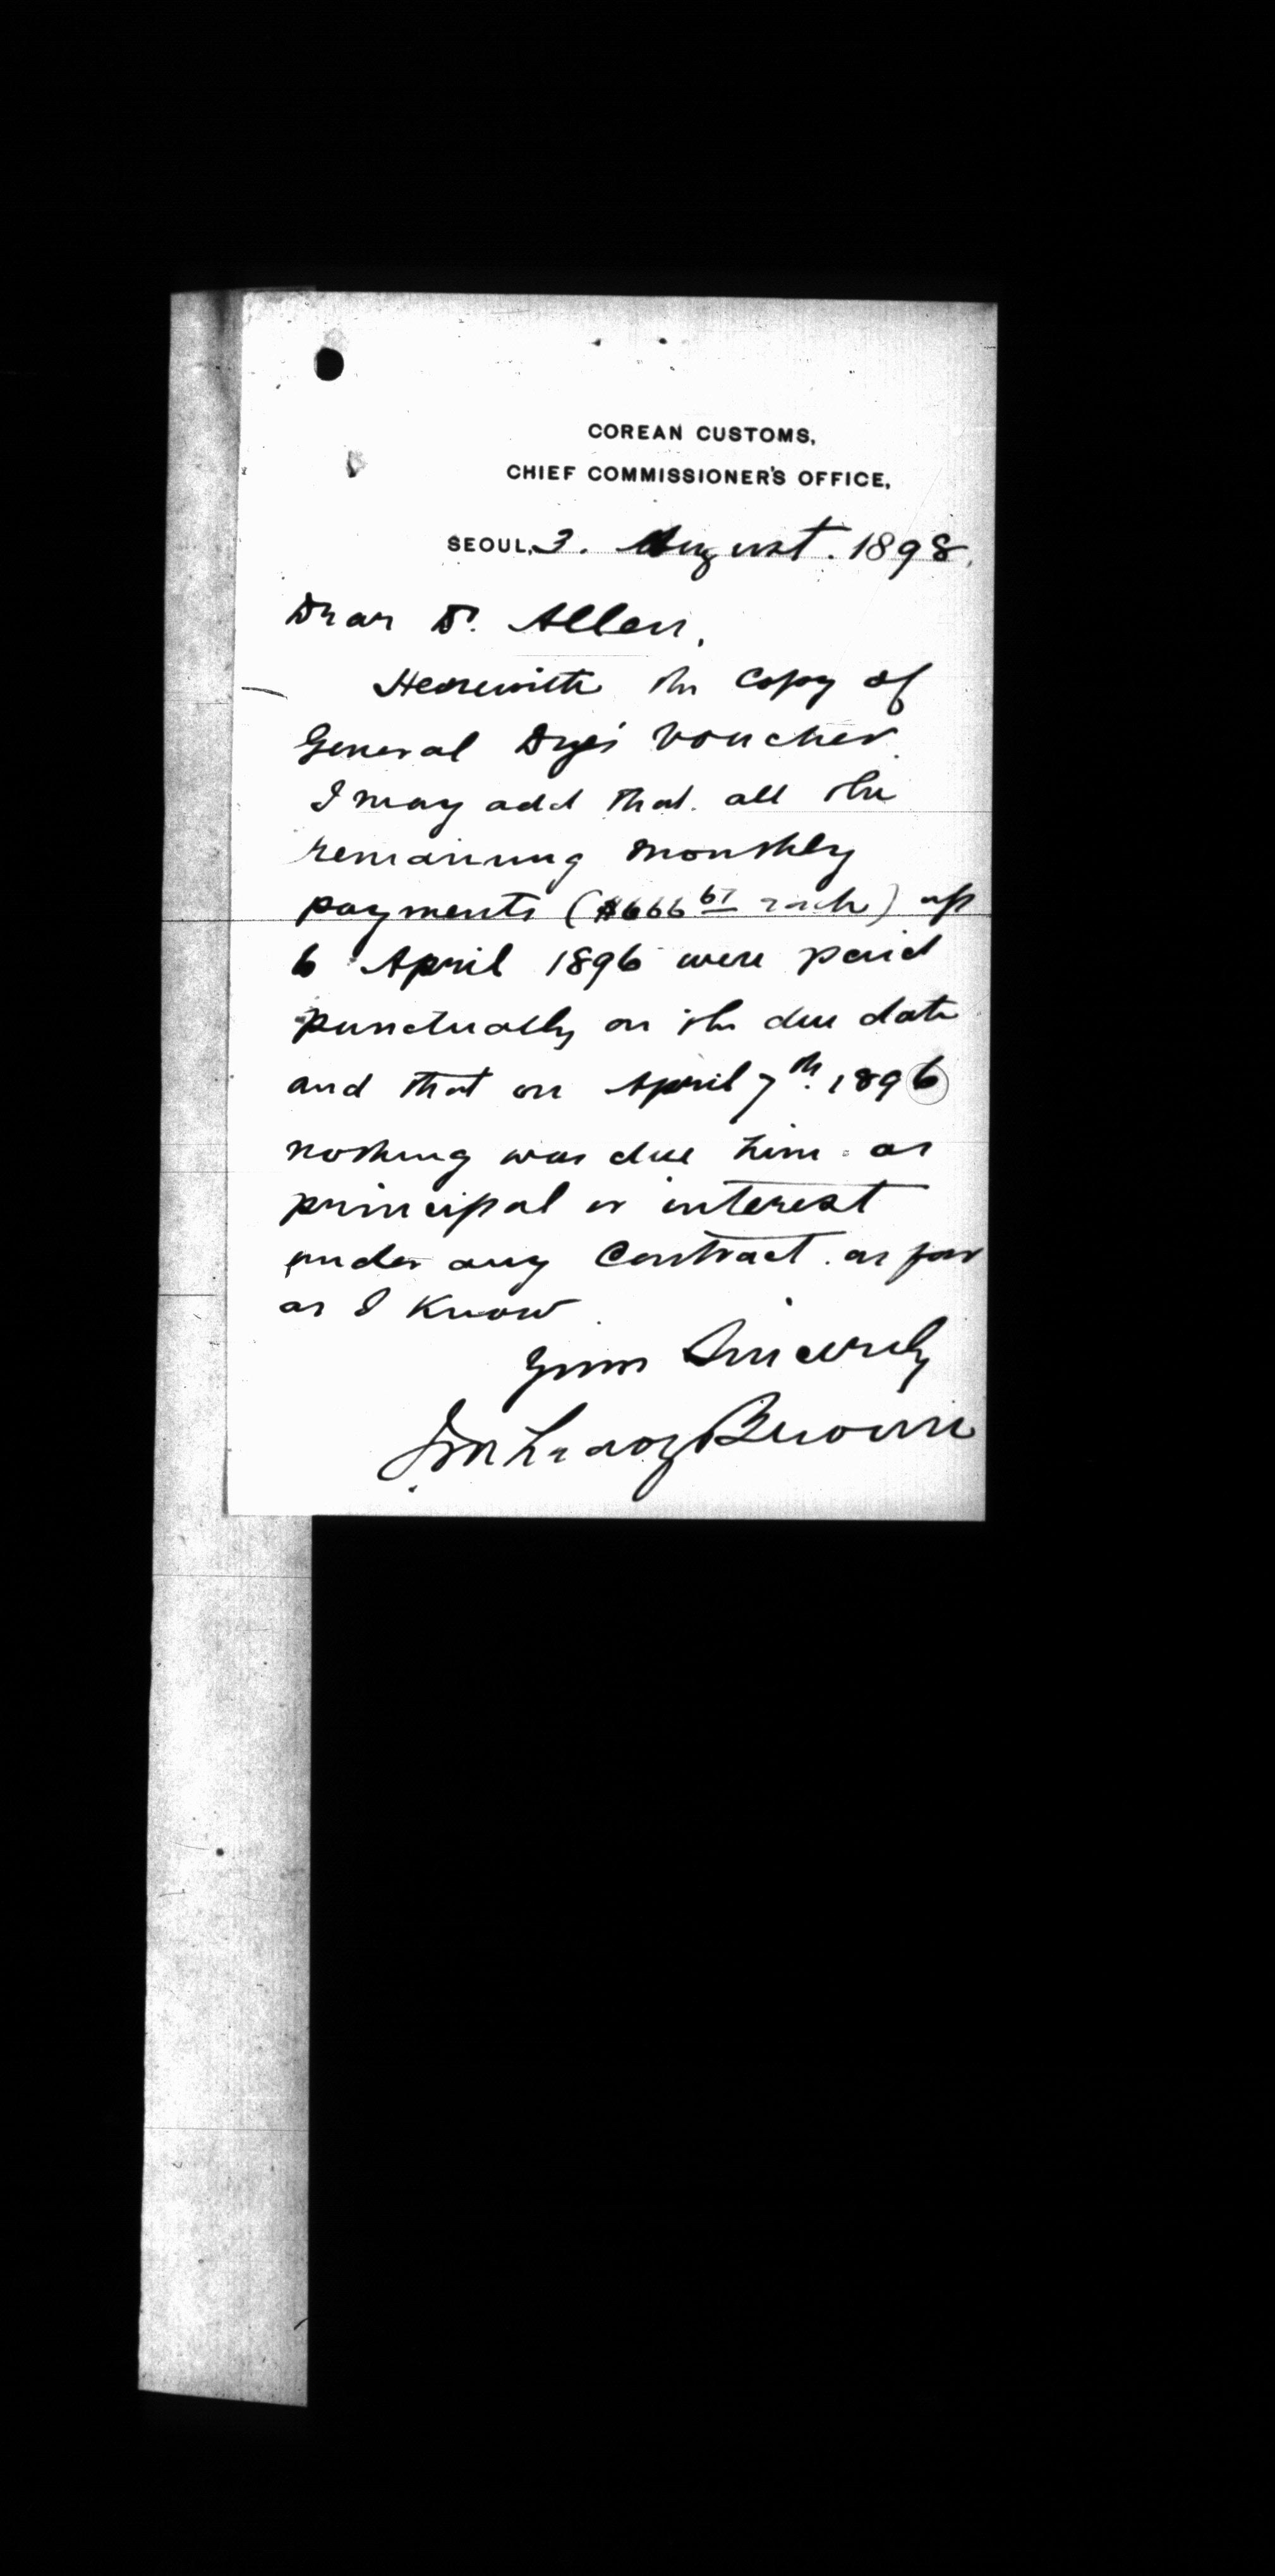 COREAN CUSTOMS,
CHIEF COMMISSIONER'S OFFICE,
SEOUL, 3. August. 1898.
Dear Dr. Allen,
Herewith the copy of
General Dye's voucher.
I may add that all the
remaining monthly
payments ($666 67 each) up
6 April 1896 were paid
punctually on the due date
and that on April 7th. 1896
nothing was due him as
principal or interest
under any Contract. as far
as I know.
Yours Sincerely
J McLeavy Brown